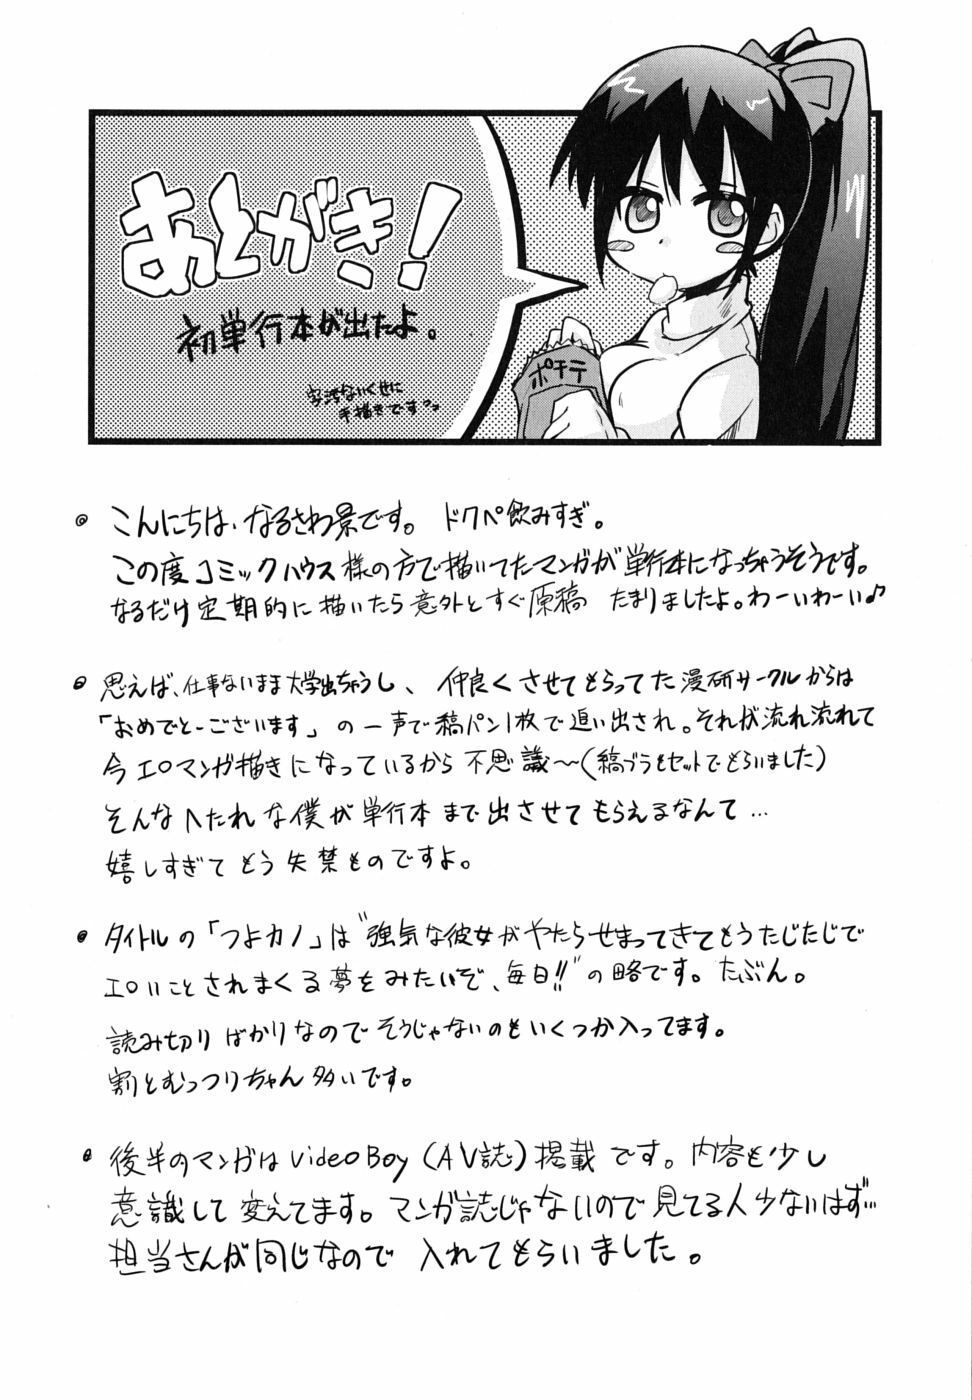 あとがき!
初単行本が出たよ。
字汚ないくせに
手描きですヨっ
ポテチ
こんにちは、なるさわ景です。 ドクペ飲みすぎ。
この度コミックハウス様の方で描いてたマンガが単行本になっちゃうそうです。
なるだけ定期的に描いたら意外とすぐ原稿 たまりましたよ。わーいわーい♪
思えば、仕事ないまま大学出ちゃうし、仲良くさせてもらってた漫研サークルからは
「おめでとーございます」の一声で縞パン1枚で追い出され。それ以流れ流れて
今エロマンガ描きになっているから不思議〜(縞ブラもセットでもらいました)
そんなヘたれな僕が単行本まで出させてもらえるなんて…
嬉しすぎてもう失禁ものですよ。
タイトルの「つよカノ」は"強気な彼女がやたらせまってきてもうたじたじで
エロいことされまくる夢をみたいぞ、毎日!!"の略です。たぶん。
読み切りばかりなのでそうじゃないのもいくつか入ってます。
割とむっつりちゃん多いです。
後半のマンガはvideo Boy(AV誌)掲載です。内容も少し
意識して変えてます。マンガ誌じゃないので見てる人少ないはず…
担当さんが同じなので 入れてもらいました。